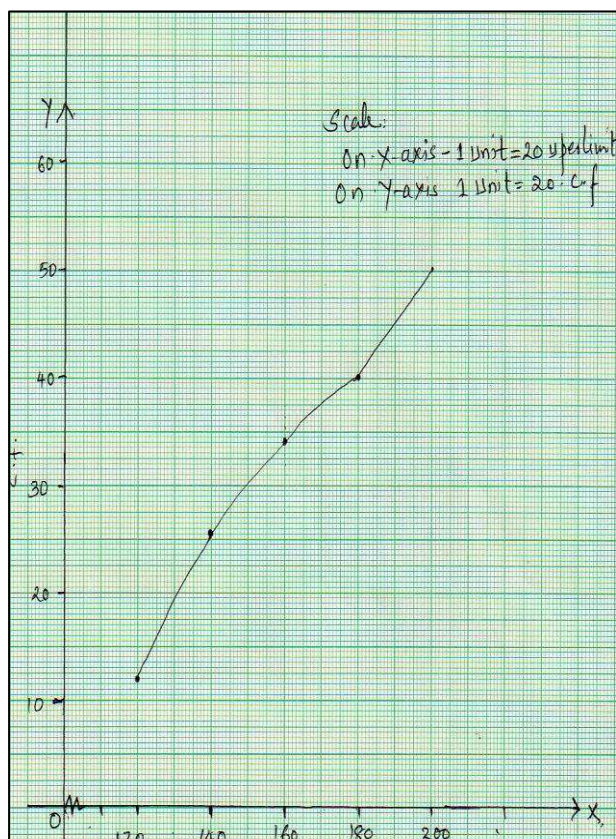 Scale:
Y
On X-axis - 1 Unit = 20 uperlimit
60
On Y-axis 1 Unit = 20. c.f
50
40
30
20
10
0
120 140 160 180 200
X